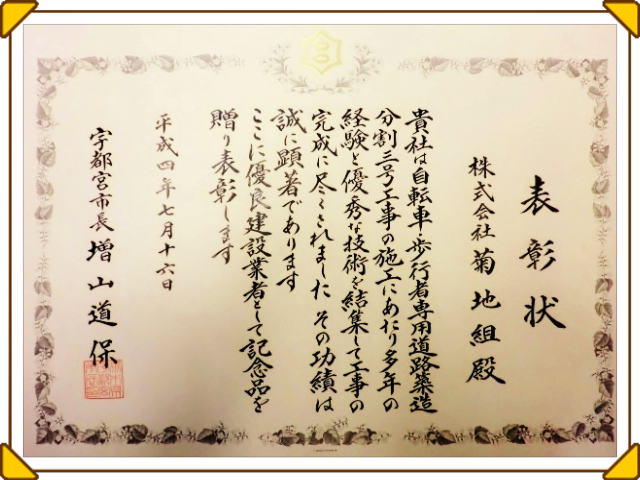 表彰状
株式会社菊地組殿
貴社は自転車・歩行者専用道路築造
分割三号工事の施工にあたり多年の
経験と優秀な技術を結集して工事の
完成に尽くされました その功績は
誠に顕著であります
ここに優良建設業者として記念品を
贈り表彰します
平成四年七月十六日
宇都宮市長 増山道保